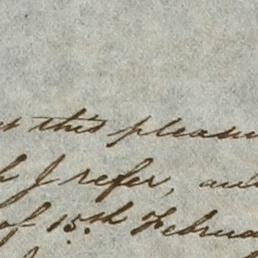 this pleasu
h I refer, and
of 15th Februa